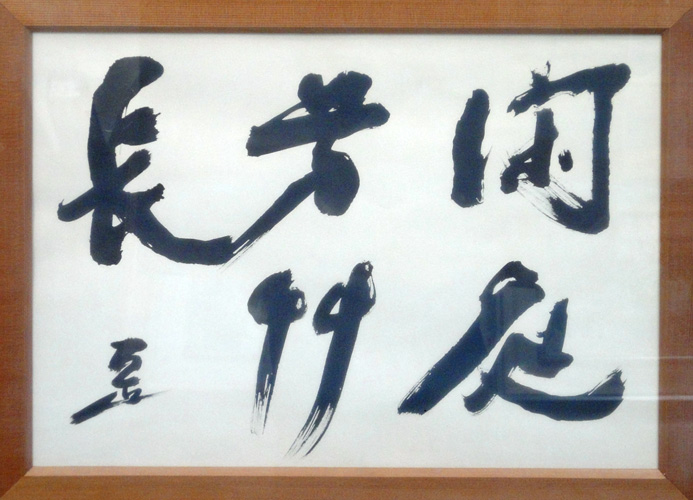 閑庭
芳艸
長